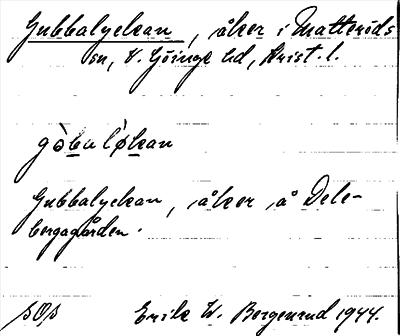 Gubbalyckan, åker i Matteröds
sn, V. Göinge hd, Krist. l.
gòbalỳkan
Gubbalyckan, åker å Dele-
bergagården.
Erik W. Borgenrud 1944.